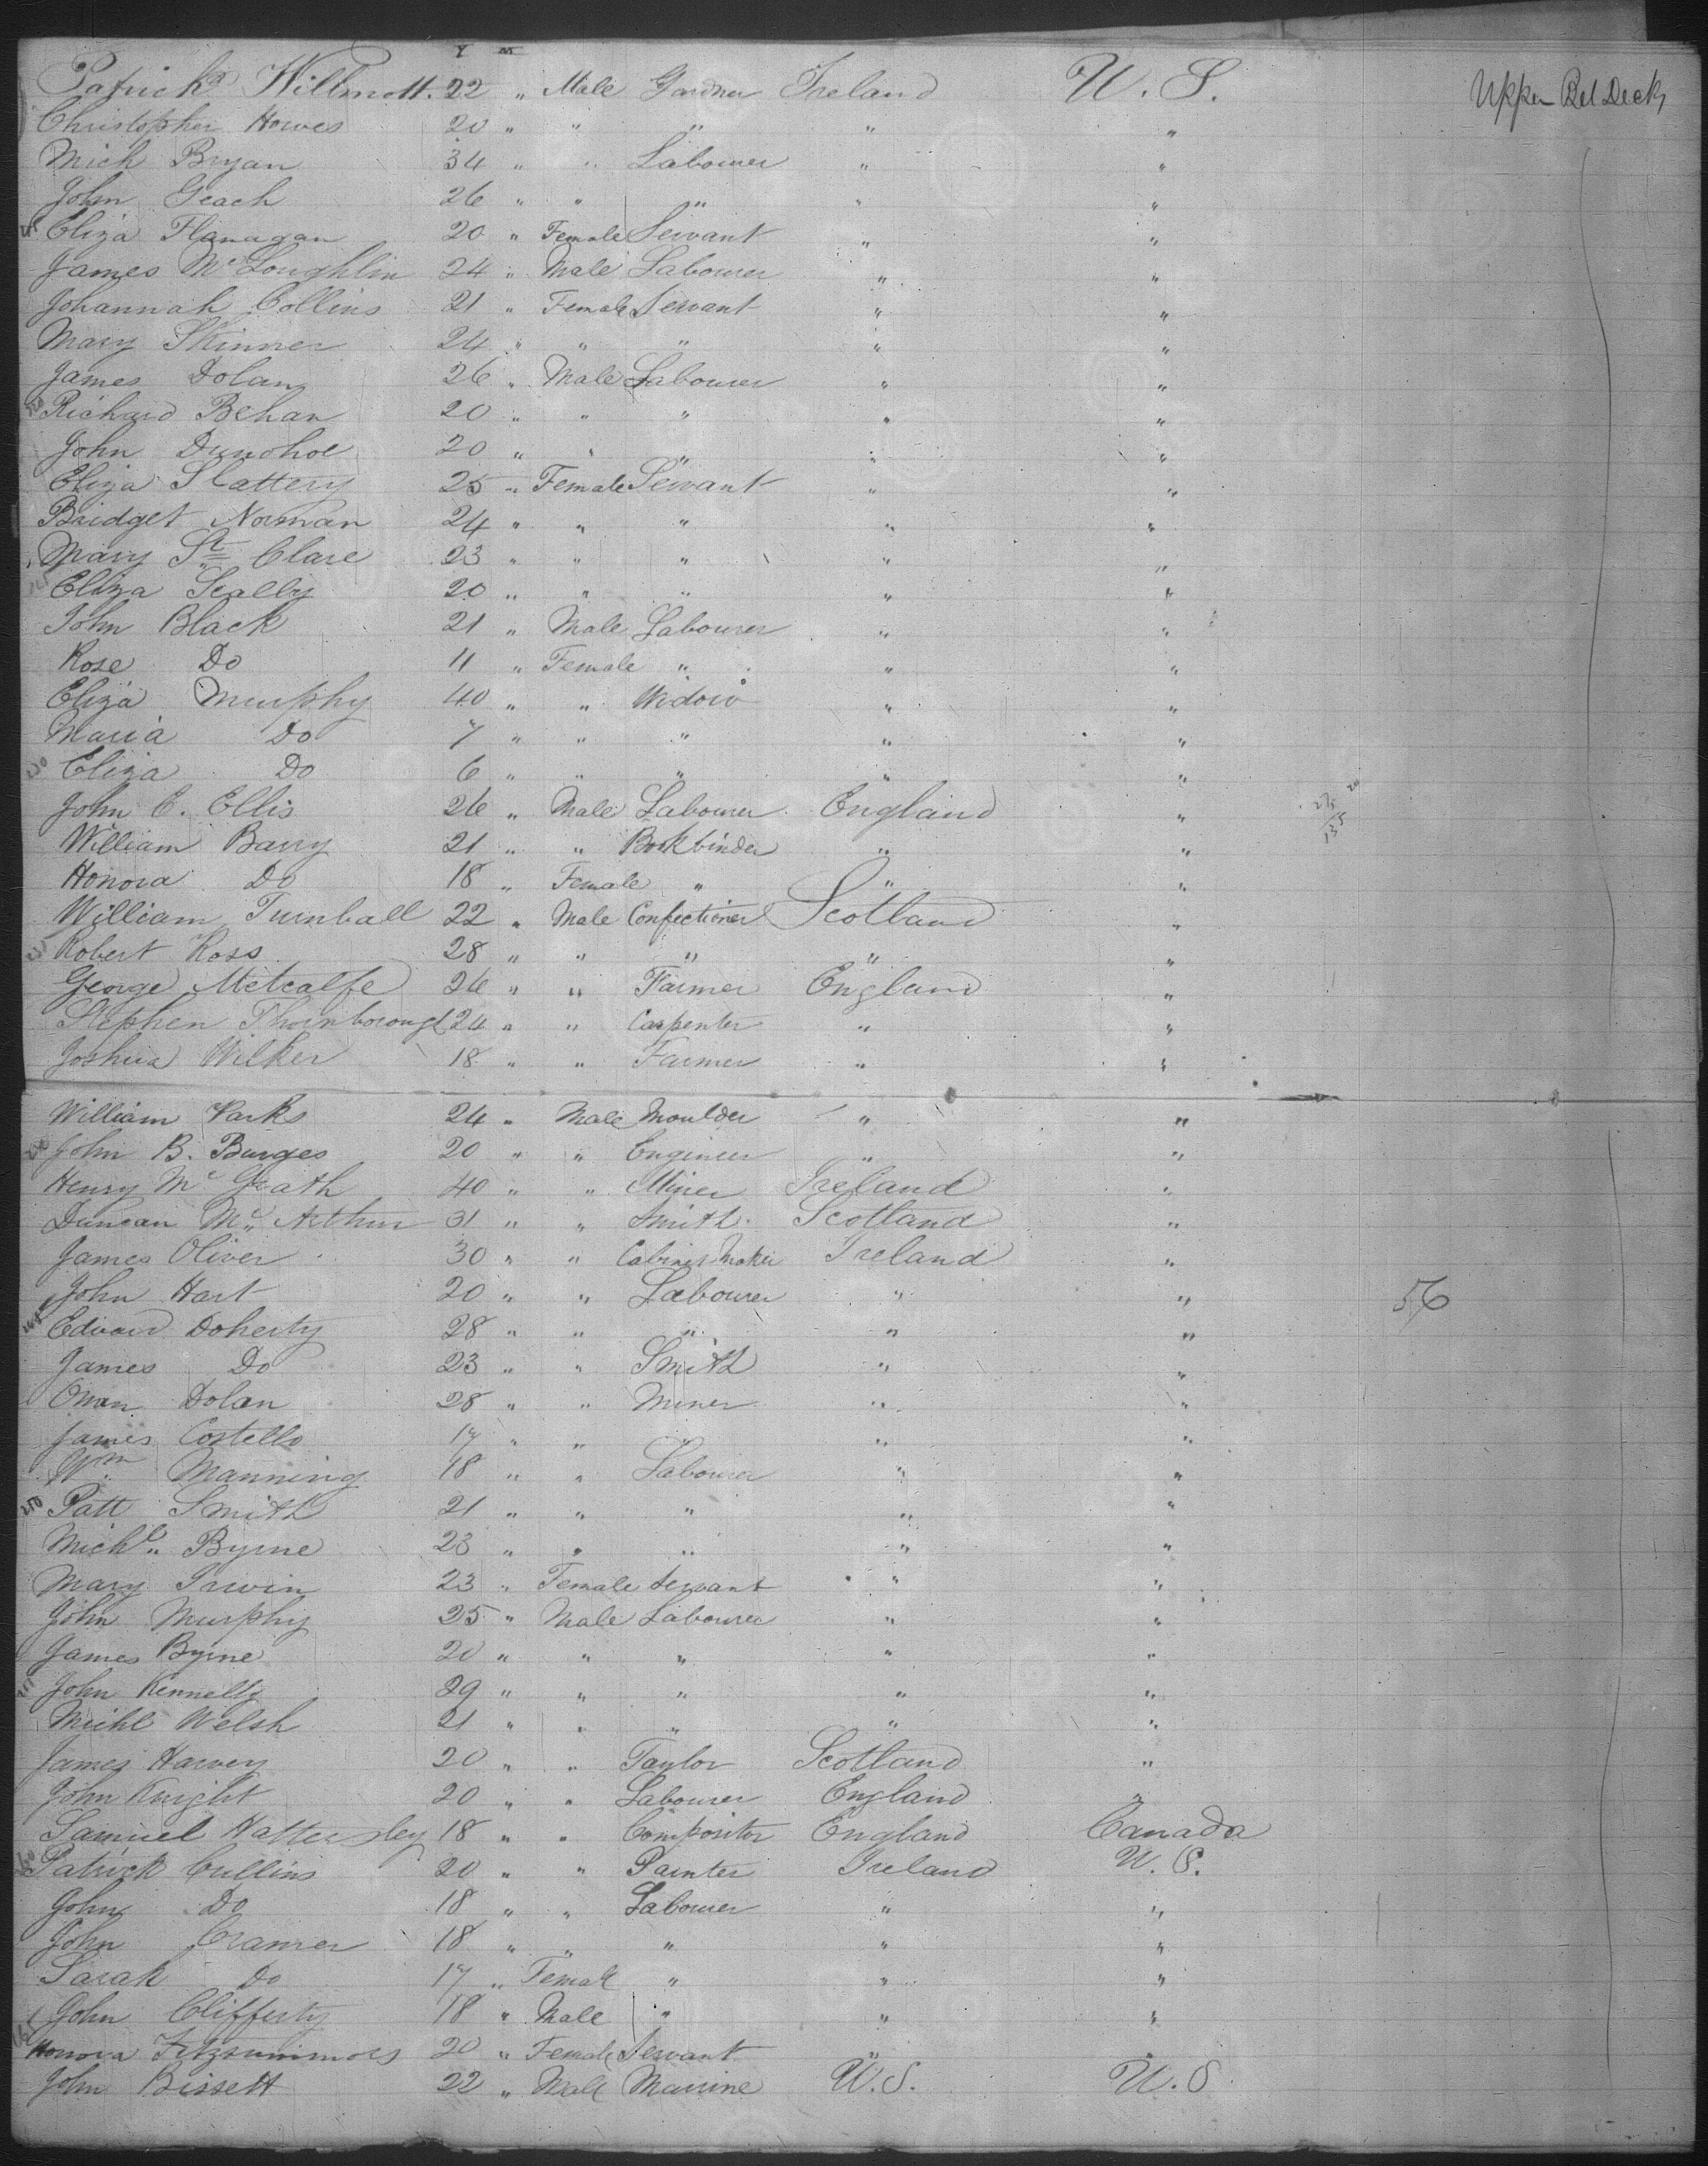 Y M
Patrick Willmott. 22 " Male Gardner Ireland U. S. Upper Bet Deck
Christopher Howes 20 " " " " "
Mich Bryan 34 " " Labourer " "
John Geach 26 " " " " "
Eliza Flanagan 20 " Female Servant " "
James Mc Loughlin 24 " Male Labourer " "
Johannah Collins 21 " Female Servant " "
Mary Skinner 24 " " " " "
James Dolan 26 " Male Labourer " "
Richard Behan 20 " " " " "
John Dunohoe 20 " " " " "
Eliza Slattery 25 " Female Servant " "
Bridget Norman 24 " " " " "
Mary St. Clare 23 " " " " "
Eliza Scally 20 " " " " "
John Black 21 " Male Labourer " "
Rose Do 11 " Female " " "
Eliza Murphy 40 " " Widow " "
Maria Do 7 " " " " "
Eliza Do 6 " " " " "
John C. Ellis 26 " Male Labourer England "
William Barry 21 " " Bookbinder " "
Honora Do 18 " Female " " "
William Turnball 22 " Male Confectioner Scotland "
Robert Ross 28 " " " " "
George Metcalfe 26 " " Farmer England "
Stephen Thornborough 24 " " Carpenter " "
Joshua Wilker 18 " " Farmer " "
William Parks 24 " Male Moulder " "
John B. Burges 20 " " Engineer " "
Henry Mc Grath 40 " " Miner Ireland "
Duncan Mc Arthur 31 " " Smith. Scotland "
James Oliver 30 " " Cabinet Maker Ireland "
John Hart 20 " " Labourer " " 56
245 Edward Doherty 28 " " " " "
James Do 23 " " Smith " "
Owen Dolan 28 " " Miner " "
James Costello 17 " " " " "
Wm Manning 18 " " Labourer " "
250 Patt Smith 21 " " " " "
Michl. Byrne 23 " " " " "
Mary Irwin 23 " Female Servant " "
John Murphy 25 " Male Labourer " "
James Byrne 20 " " " " "
255 John Kennelly 29 " " " " "
Michl Welsh 21 " " " " "
James Harvey 20 " " Taylor Scotland "
John Knight 20 " " Labourer England "
Samuel Hattersley 18 " " Compositor England Canada
260 Patrick Cullins 20 " " Painter Ireland U. S.
John Do 18 " " Labourer " "
John Cramer 18 " " " " "
Sarah Do 17 " Female " " "
John Clifferty 18 " Male " " "
Honora Fitzsimmors 20 " Female Servant " "
John Bissett 22 " Male Marrine U. S. U. S